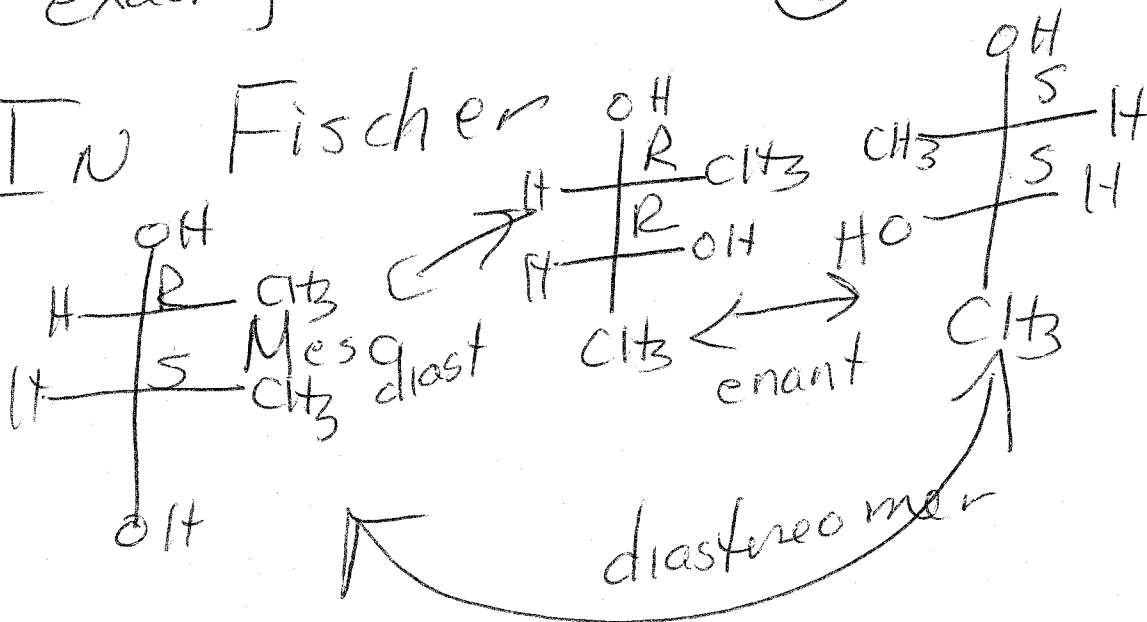 In Fischer
OH
H R CH3
H S CH3
OH
Meso
diast
OH
H R CH3
H R OH
CH3
enant
OH
CH3 S H
HO S H
CH3
diastreomer